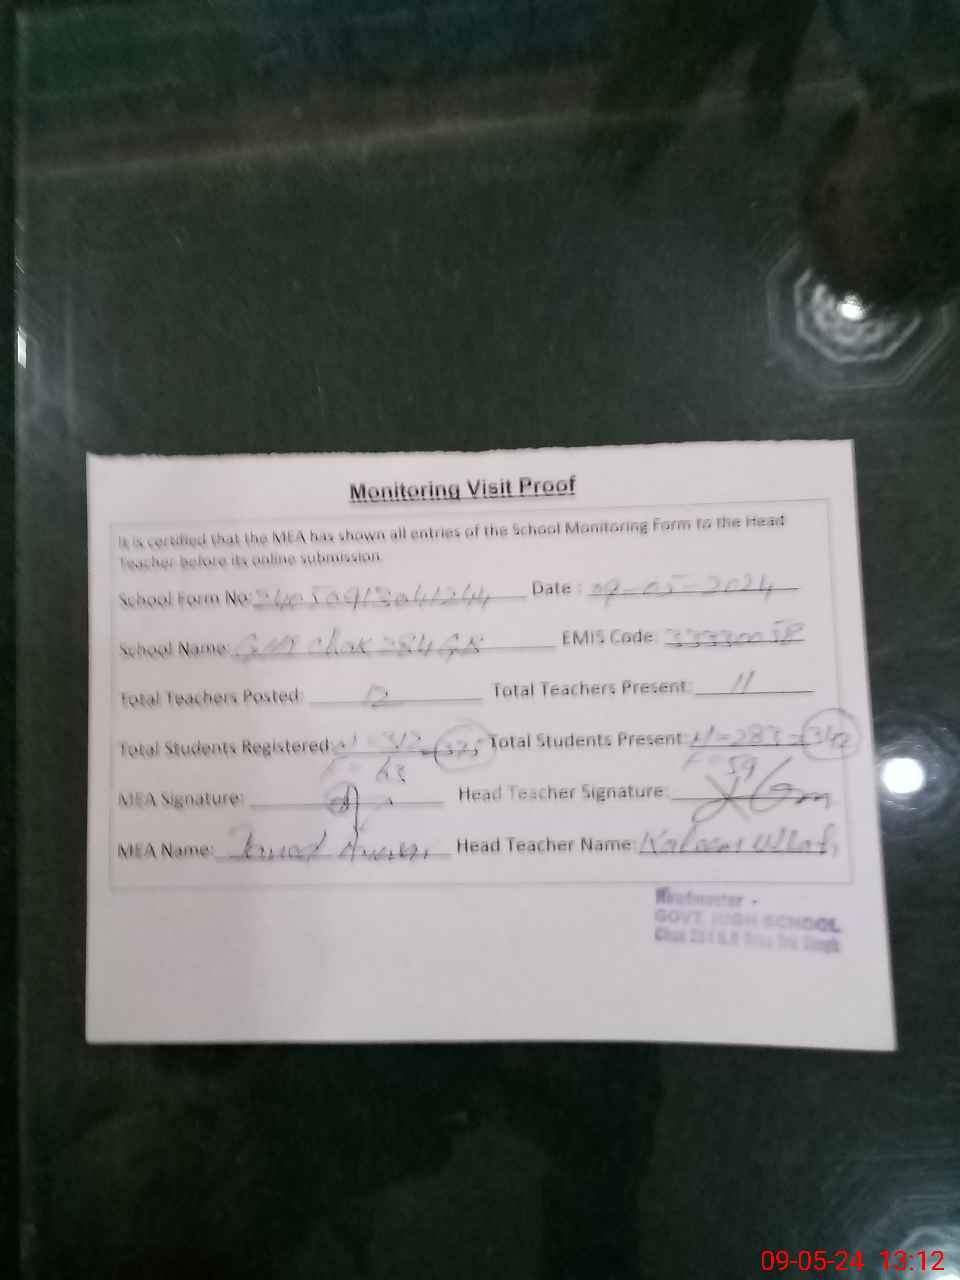 Monitoring Visit Proof
It is certified that the MEA has shown all entries of the School Monitoring Form to the Head
Teacher before its online submission.
School Form No: 24050913041244 Date : 09-05-2024
School Name: Chak 284 GB EMIS Code:
Total Teachers Posted: 12 Total Teachers Present: 11
Total Students Registered: 375 Total Students Present: M=283 342
F= 63 F= 59
MEA Signature: Head Teacher Signature:
MEA Name: Head Teacher Name: Kaleem Ullah
Headmaster
GOVT. HIGH SCHOOL
Chak 284 G.B
09-05-24 13:12